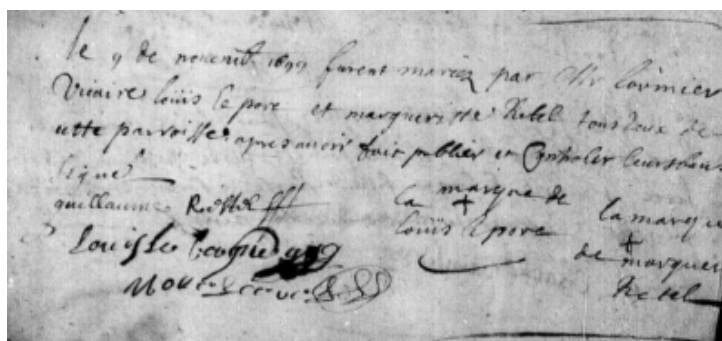 le 9 de novemb. 1699 furent mariez par Mr Cormier
Vicaire loüis le pore et margueritte Retel tous deux de
cette parroisse apres avoir fait publier et Controler leurs bans
signé
guillaume Rettel
la marque de
loüis le pore
la marque
de marguer
Retel
Louis le